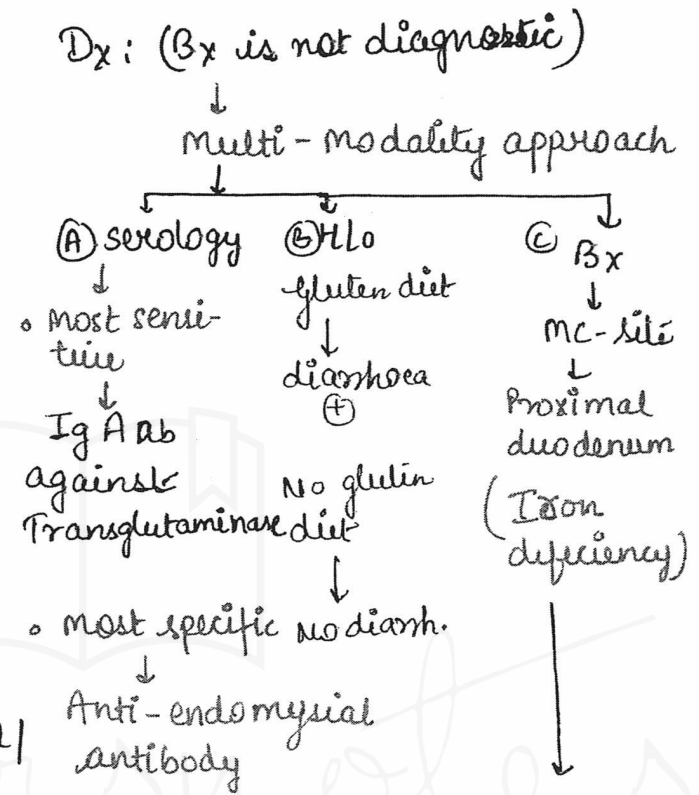 Dx : (Bx is not diagnostic)
↓
Multi - modality approach
Ⓐ serology
↓
• most sensi-
tive
↓
Ig A ab
against
Transglutaminase
• most specific
↓
Anti - endomysial
antibody
Ⓑ H/o
gluten diet
↓
diarrhoea
⊕
No glutin
diet
↓
No diarrh.
Ⓒ Bx
↓
MC - site
↓
Proximal
duodenum
(Iron
deficiency)
↓